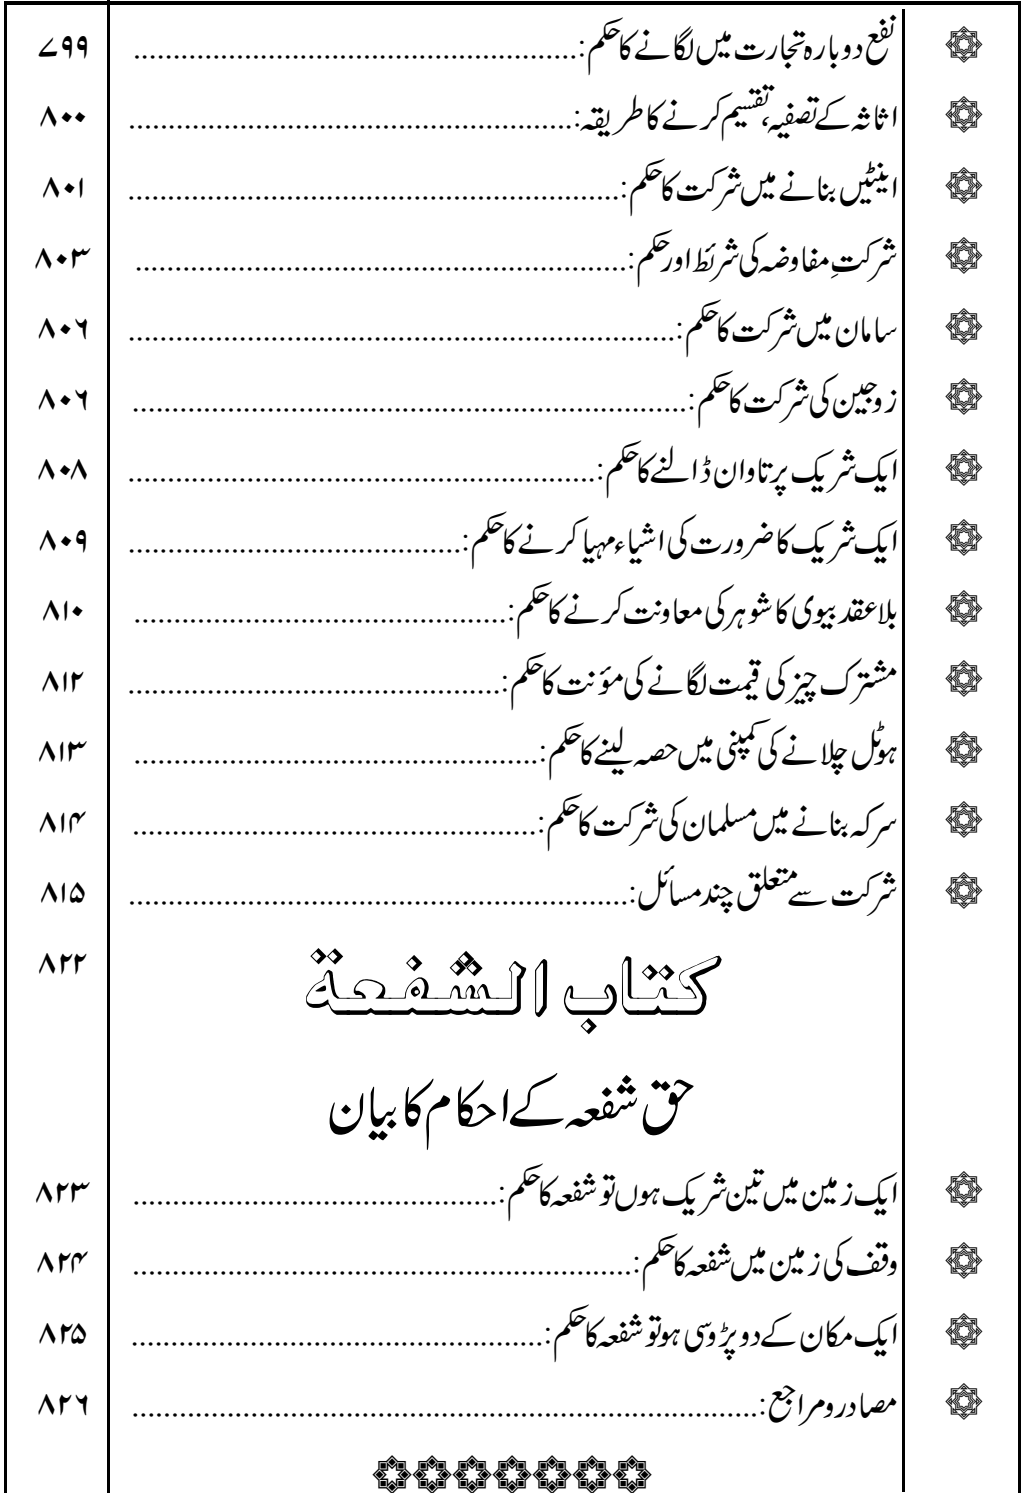 نفع دوبارہ تجارت میں لگانے کا حکم: ........................................................ ۷۹۹
اثاثہ کے تصفیہ، تقسیم کرنے کا طریقہ: ........................................................ ۸۰۰
اینٹیں بنانے میں شرکت کا حکم: ............................................................... ۸۰۱
شرکتِ مفاوضہ کی شرئط اور حکم: ............................................................... ۸۰۳
سامان میں شرکت کا حکم: ...................................................................... ۸۰۶
زوجین کی شرکت کا حکم: ....................................................................... ۸۰۶
ایک شریک پر تاوان ڈالنے کا حکم: ............................................................ ۸۰۸
ایک شریک کا ضرورت کی اشیاء مہیا کرنے کا حکم: .......................................... ۸۰۹
بلا عقد بیوی کا شوہر کی معاونت کرنے کا حکم: ............................................... ۸۱۰
مشترک چیز کی قیمت لگانے کی مؤنت کا حکم: ............................................... ۸۱۲
ہوٹل چلانے کی کمپنی میں حصہ لینے کا حکم: .................................................... ۸۱۳
سرکہ بنانے میں مسلمان کی شرکت کا حکم: .................................................... ۸۱۴
شرکت سے متعلق چند مسائل: ................................................................ ۸۱۵
کتاب الشفعة ۸۲۲
حق شفعہ کے احکام کا بیان
ایک زمین میں تین شریک ہوں تو شفعہ کا حکم: ............................................... ۸۲۳
وقف کی زمین میں شفعہ کا حکم: ................................................................ ۸۲۴
ایک مکان کے دو پڑوسی ہو تو شفعہ کا حکم: ..................................................... ۸۲۵
مصادر ومراجع: ................................................................................ ۸۲۶